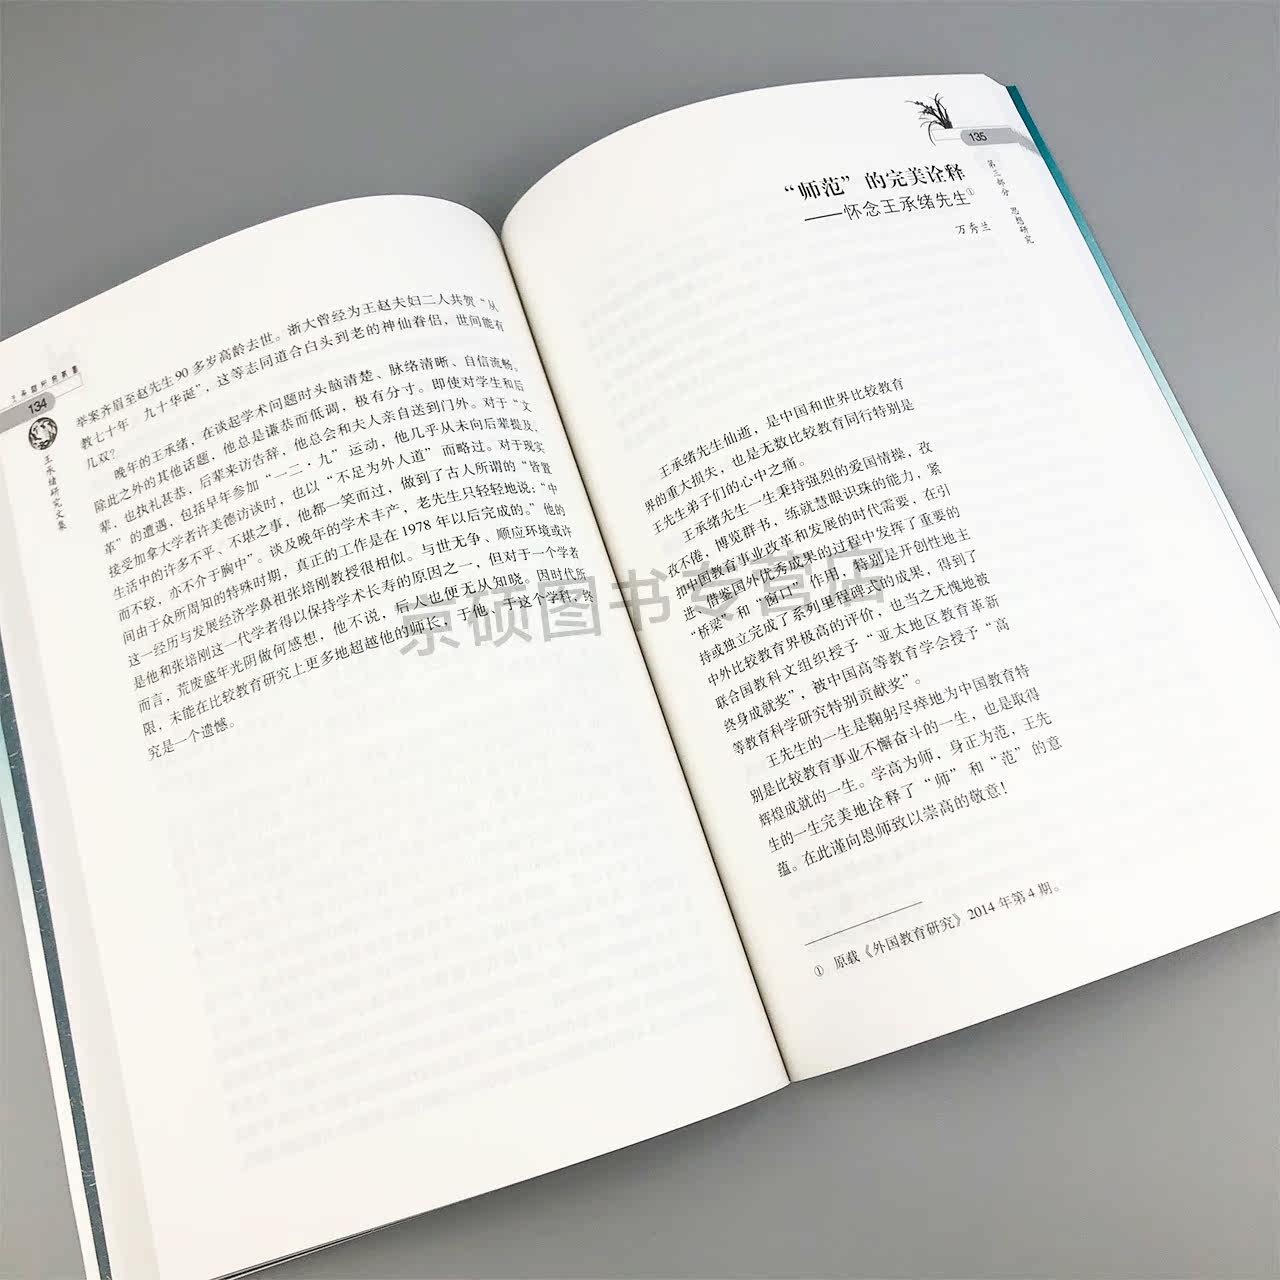 134
王承绪研究文集
举案齐眉至赵先生90多岁高龄去世。浙大曾经为王赵夫妇二人共贺“从
教七十年 九十华诞”，这等志同道合白头到老的神仙眷侣，世间能有
几双？
晚年的王承绪，在谈起学术问题时头脑清楚、脉络清晰、自信流畅。
除此之外的其他话题，他总是谦恭而低调，极有分寸。即使对学生和后
辈，也执礼甚恭，后辈来访告辞，他总会和夫人亲自送到门外。对于“文
革”的遭遇，包括早年参加“一二·九”运动，他几乎从未向后辈提及、
接受加拿大学者许美德访谈时，也以“不足为外人道”而略过。对于现实
生活中的许多不平、不堪之事，他都一笑而过，做到了古人所谓的“皆置
而不较，亦不介于胸中”。谈及晚年的学术丰产，老先生只轻轻地说：“中
间由于众所周知的特殊时期，真正的工作是在1978年以后完成的。”他的
这一经历与发展经济学鼻祖张培刚教授很相似。与世无争、顺应环境或许
是他和张培刚这一代学者得以保持学术长寿的原因之一，但对于一个学者
而言，荒废盛年光阴做何感想，他不说，后人也便无从知晓。因时代所
限，未能在比较教育研究上更多地超越他的师长，于他、于这个学科，终
究是一个遗憾。
135
第三部分 思想研究
“师范”的完美诠释
——怀念王承绪先生①
万秀兰
王承绪先生仙逝，是中国和世界比较教育
界的重大损失，也是无数比较教育同行特别是
王先生弟子们的心中之痛。
王承绪先生一生秉持强烈的爱国情操，孜
孜不倦，博览群书，练就慧眼识珠的能力，紧
扣中国教育事业改革和发展的时代需要，在引
进、借鉴国外优秀成果的过程中发挥了重要的
“桥梁”和“窗口”作用，特别是开创性地主
持或独立完成了系列里程碑式的成果，得到了
中外比较教育界极高的评价，也当之无愧地被
联合国教科文组织授予“亚太地区教育革新
终身成就奖”，被中国高等教育学会授予“高
等教育科学研究特别贡献奖”。
王先生的一生是鞠躬尽瘁地为中国教育特
别是比较教育事业不懈奋斗的一生，也是取得
辉煌成就的一生。学高为师，身正为范，王先
生的一生完美地诠释了“师”和“范”的意
蕴。在此谨向恩师致以崇高的敬意！
① 原载《外国教育研究》2014年第4期。
京硕图书专营店